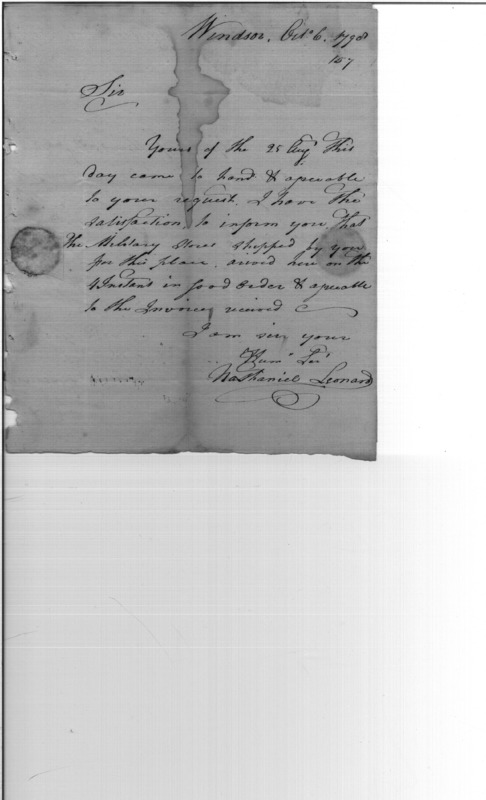 Windsor, Octr 6. 1798
157
Sir
Yours of the 25 Augt This
day came to hand & agreeable
to your request. I have the
satisfaction to inform you that
The Military Stores shipped by you
for this place arived here on the
4 Instant in good Order & agreeable
to the Invoice received
I am sir your
Humᵉ Sert
Nathaniel Leonard